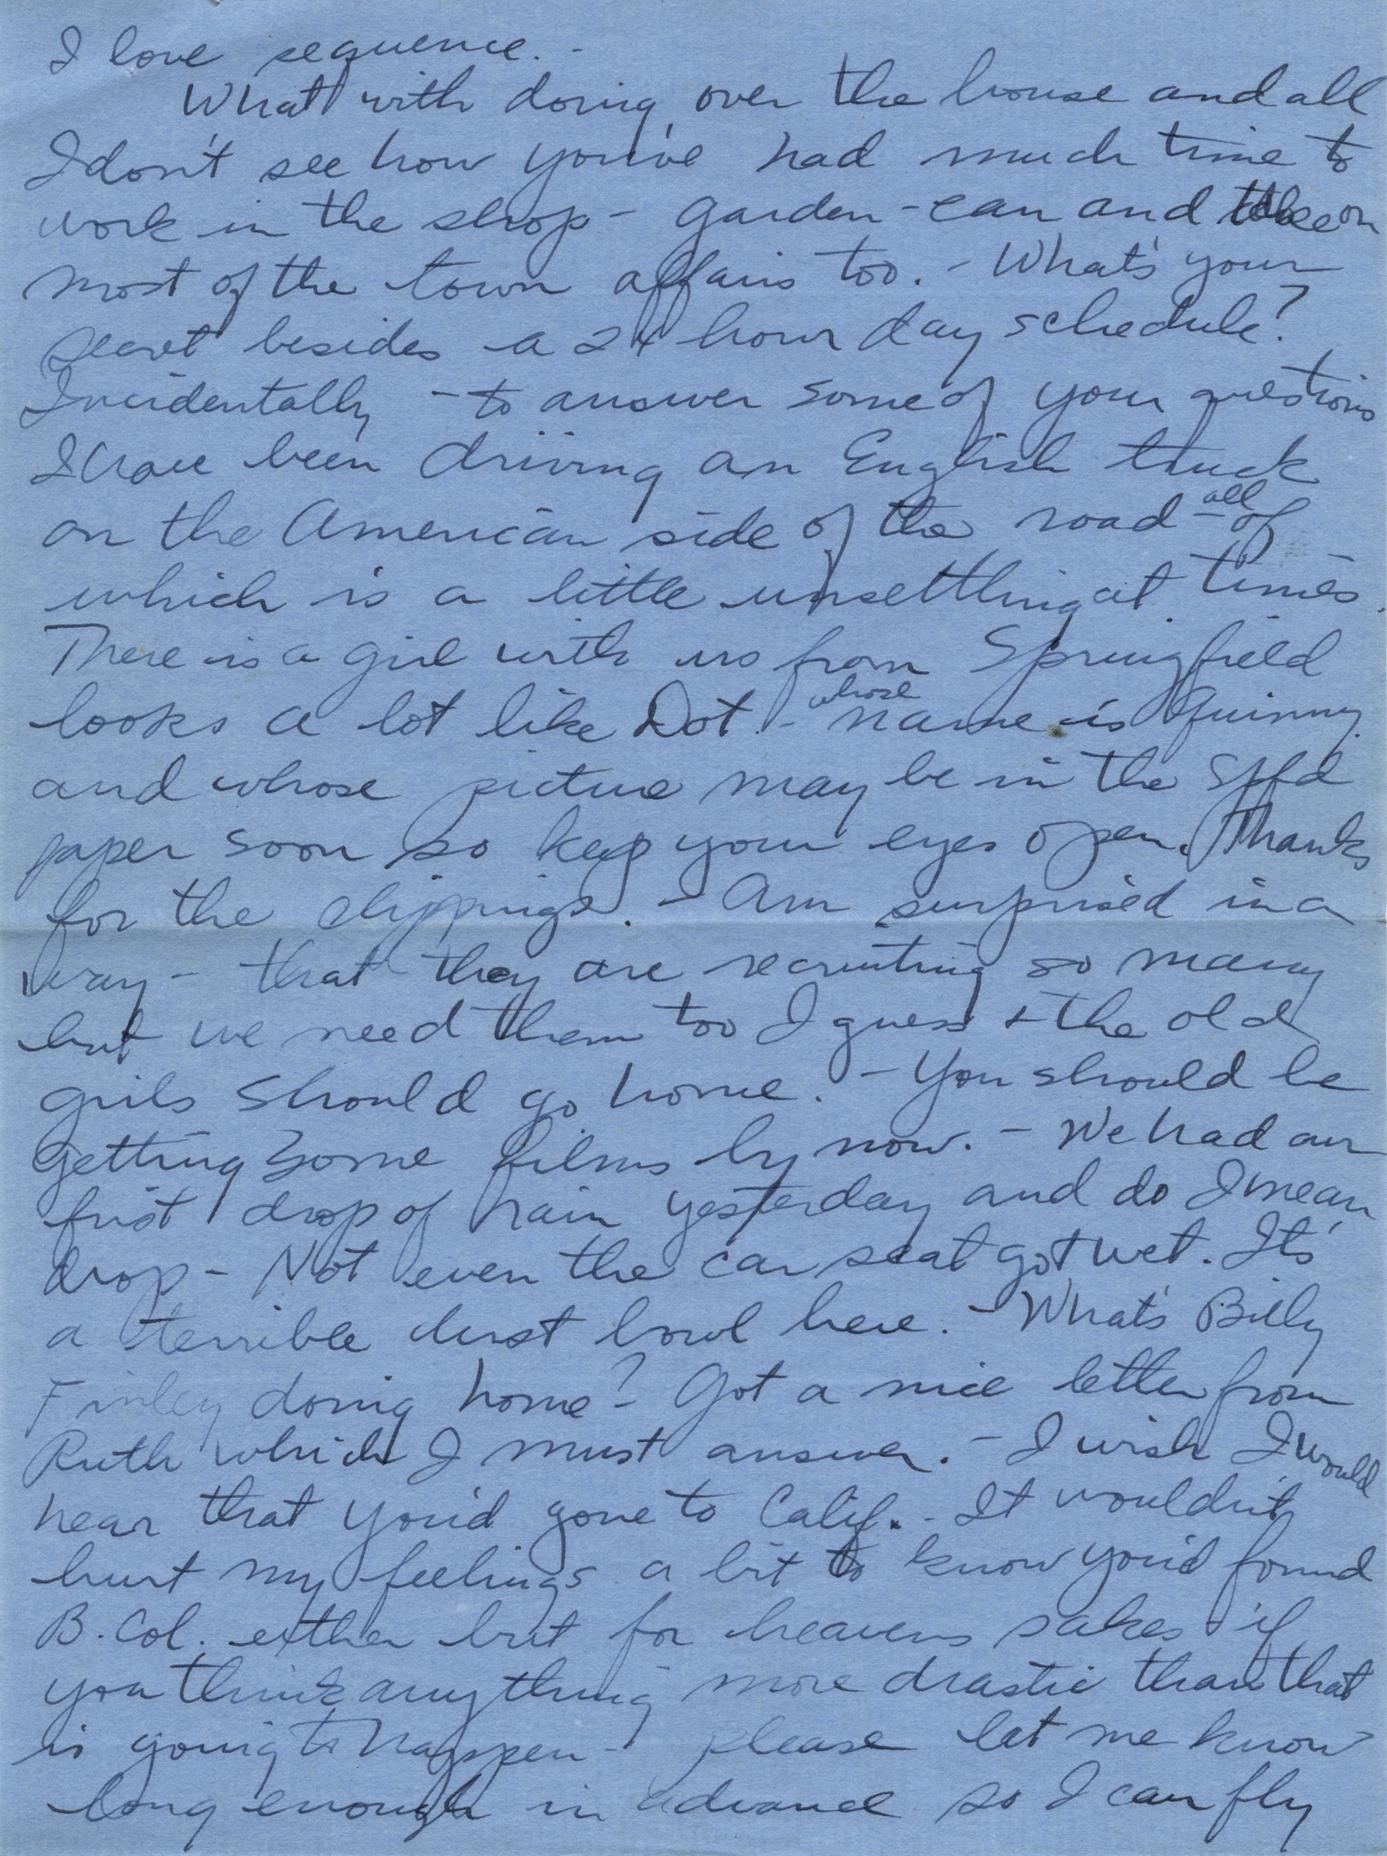 I love sequence. -
What with doing over the house and all
I don't see how you've had much time to
work in the shop - garden - can and take on
most of the town affairs too. - What's your
secret besides a 24 hour day schedule?
Incidentally - to answer some of your questions
I have been driving an English truck
on the American side of the road - all of
which is a little unsettling at times.
There is a girl with us from Springfield
looks a lot like Dot. - whose name is Quinny
and whose picture may be in the Spfd
paper soon so keep your eyes open. Thanks
for the clippings. - Am surprised in a
way - that they are recruiting so many
but we need them too I guess + the old
girls should go home. - You should be
getting some films by now. - We had our
first drop of rain yesterday and do I mean
drop - Not even the car seat got wet. It's
a terrible dust bowl here. - What's Billy
Finley doing home? - Got a nice letter from
Ruth which I must answer. - I wish I would
hear that you'd gone to Calif. - It wouldn't
hurt my feelings a bit to know you'd found
B. Col. either but for heavens sakes if
you think anything more drastic than that
is going to happen - please let me know
long enough in advance so I can fly